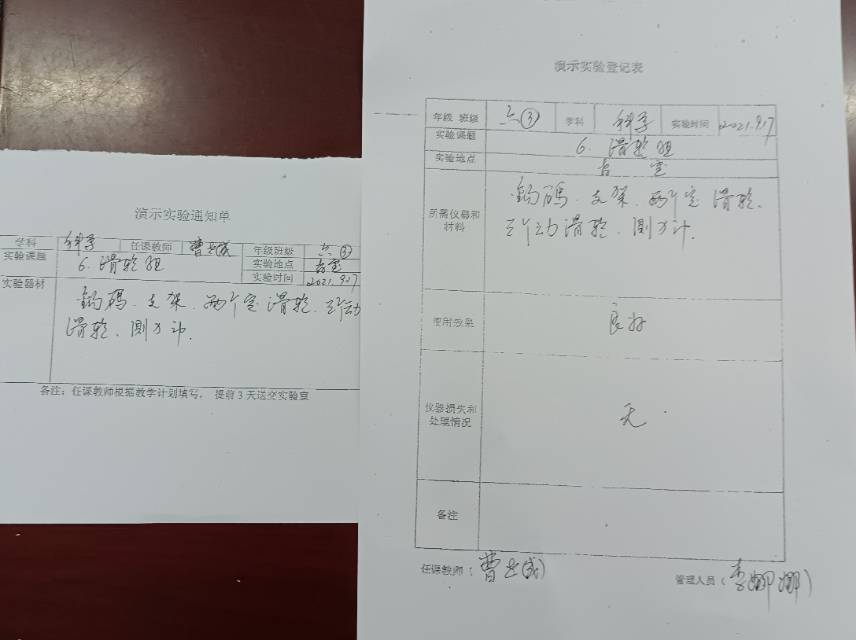 演示实验通知单
学科 科学 任课教师 曹 年级班级 六③
实验课题 6. 滑轮组 实验地点 室
实验时间 2021.9.17
实验器材 钩码、支架、两个定滑轮、动
滑轮、测力计.
备注：任课教师根据教学计划填写， 提前3天送交实验室
演示实验登记表
年级 班级 六③ 学科 科学 实验时间 2021.9.17
实验课题 6. 滑轮组
实验地点 室
所需仪器和材料 钩码、支架、两个定滑轮、
动滑轮、测力计.
使用效果 良好
仪器损失和处理情况 无
备注
任课教师：曹
管理人员（李娜娜）